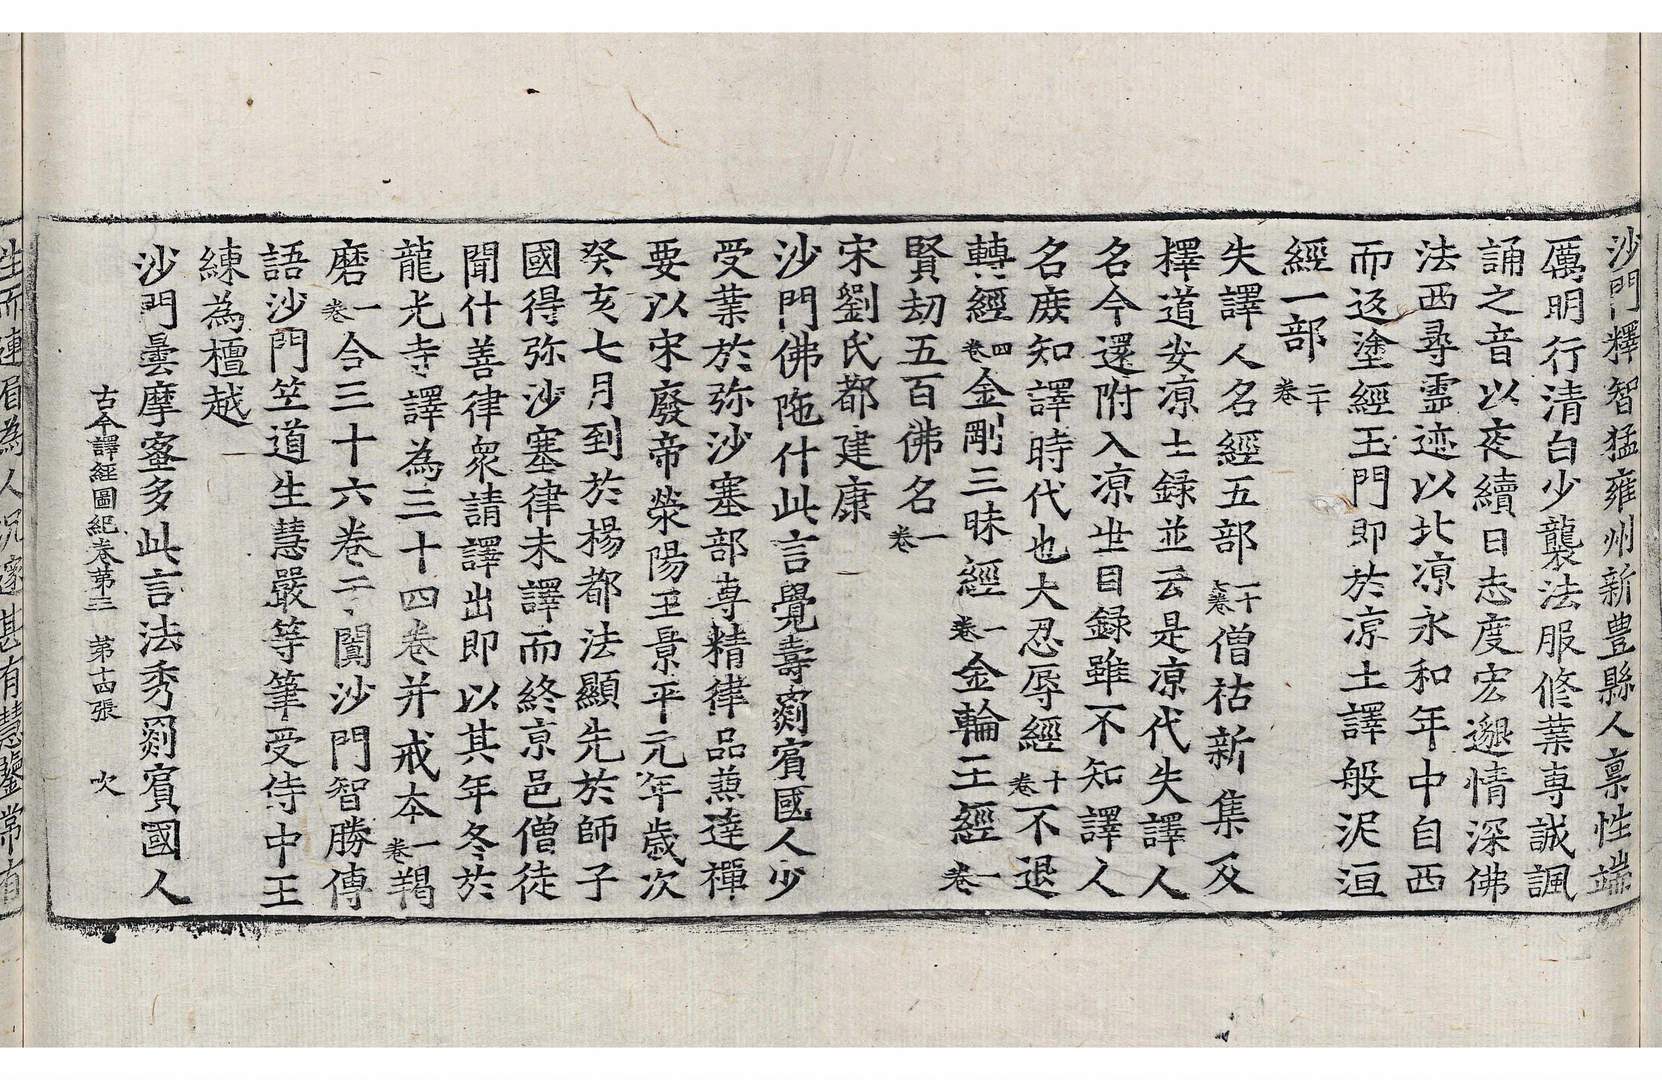 沙門釋智猛雍州新豊縣人稟性端
厲明行清白少襲法服修業専誠諷
誦之音以夜續日志度宏邈情深佛
法西尋霊迹以北涼永和年中自西
而返塗經玉門即於涼土譯般泥洹
經一部二十卷
失譯人名經五部一十七卷僧祐新集及
釋道安涼土録並云是涼代失譯人
名今還附入涼世目録雖不知譯人
名庻知譯時代也大忍辱經十卷不退
轉經四卷金剛三昧經一卷金輪王經一卷
賢劫五百佛名一卷
宋劉氏都建康
沙門佛陁什此言覺壽罽賓國人少
受業於弥沙塞部専精律品兼達禪
要以宋廢帝滎陽王景平元年歳次
癸亥七月到於楊都法顯先於師子
國得弥沙塞律未譯而終京邑僧徒
聞什善律衆請譯出即以其年冬於
龍光寺譯為三十四卷并戒本一卷羯
磨一卷合三十六卷于闐沙門智勝傳
語沙門竺道生慧嚴等筆受侍中王
練為檀越
沙門曇摩蜜多此言法秀罽賓國人
古今譯經圖紀卷苐三 苐十四張 次
生而連眉為人沉邃甚有慧鑒常有